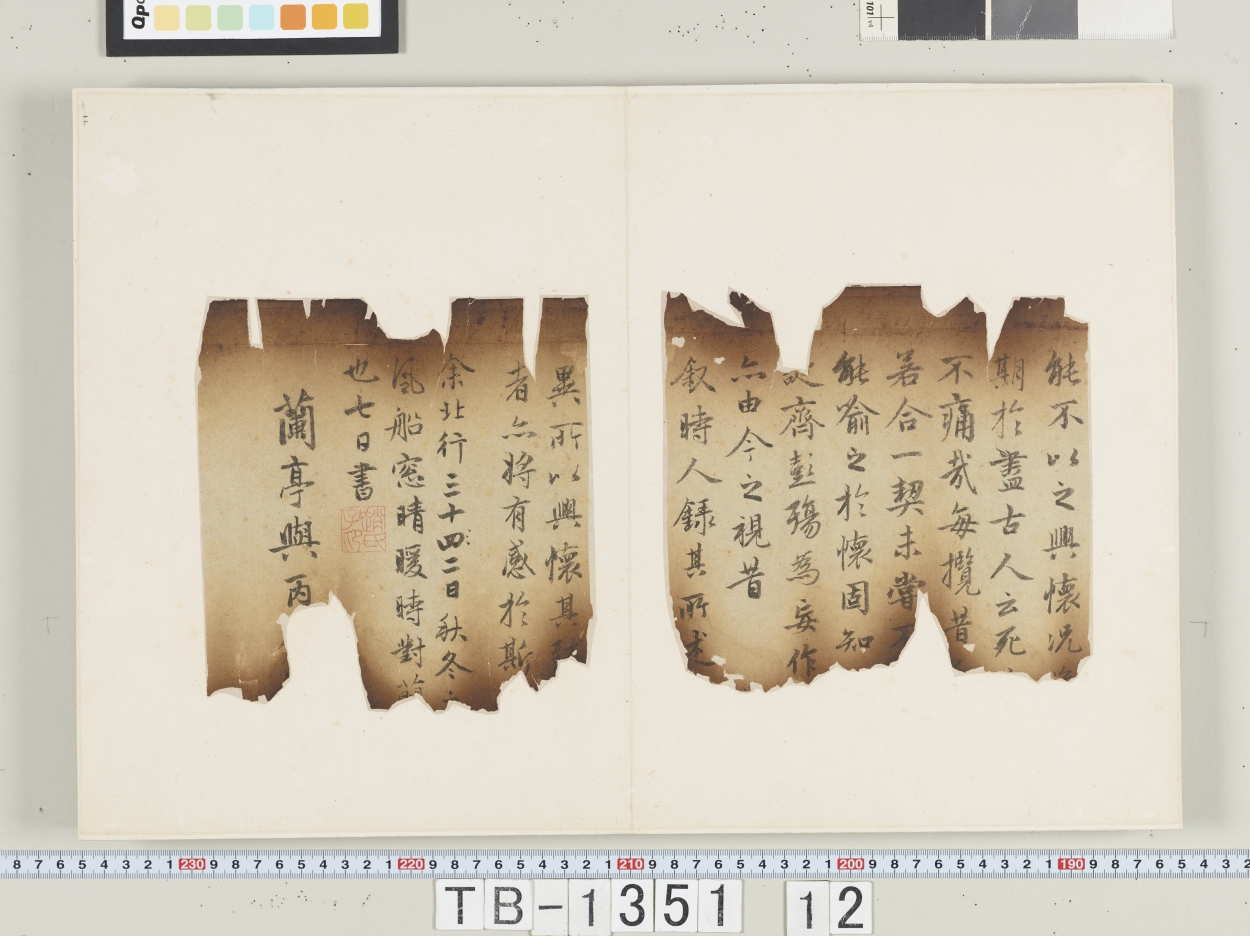 能不以之興懷況
期於盡古人云死
不痛哉每攬昔
若合一契未嘗不
能喻之於懷固知
齊彭殤為妄作
亦由今之視昔
叙時人録其所述
異所以興懷其
者亦將有感於斯
余北行三十四二日秋冬
風船窓晴暖時對
也七日書
蘭亭與丙
TB-1351 12